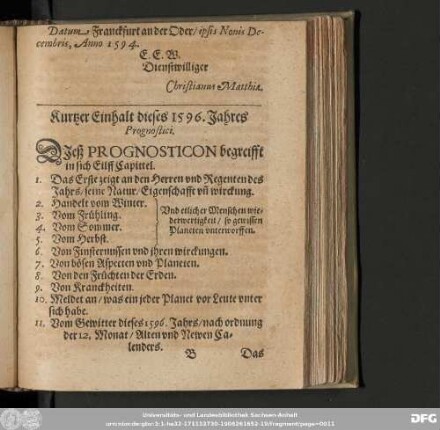 Datum Franckfurt an der Oder / ipsis Nonis De-
cembris, Anno 1594.
E. E. W.
Dienstwilliger
Christianus Matthiæ.
Kurtzer Einhalt dieses 1596. Jahres
Prognostici.
DJeß PROGNOSTICON begreifft
in sich Eilff Capittel.
1. Das Erste zeigt an den Herren vnd Regenten des
Jahrs / seine Natur / Eigenschafft vñ wirckung.
2. Handelt vom Winter.
3. Vom Frühling.
4. Vom Sommer.
5. Vom Herbst.
Vnd etlicher Menschen wie-
derwertigkeit / so gewissen
Planeten vnterworffen.
6. Von Finsternussen vnd ihren wirckungen.
7. Von bösen Aspecten vnd Planeten.
8. Von den Früchten der Erden.
9. Von Kranckheiten.
10. Meldet an / was ein jeder Planet vor Leute vnter
sich habe.
11. Vom Gewitter dieses 1596. Jahrs / nach ordnung
der 12. Monat / Alten vnd Newen Ca-
lenders.
B Das
Universitäts- und Landesbibliothek Sachsen-Anhalt
DFG